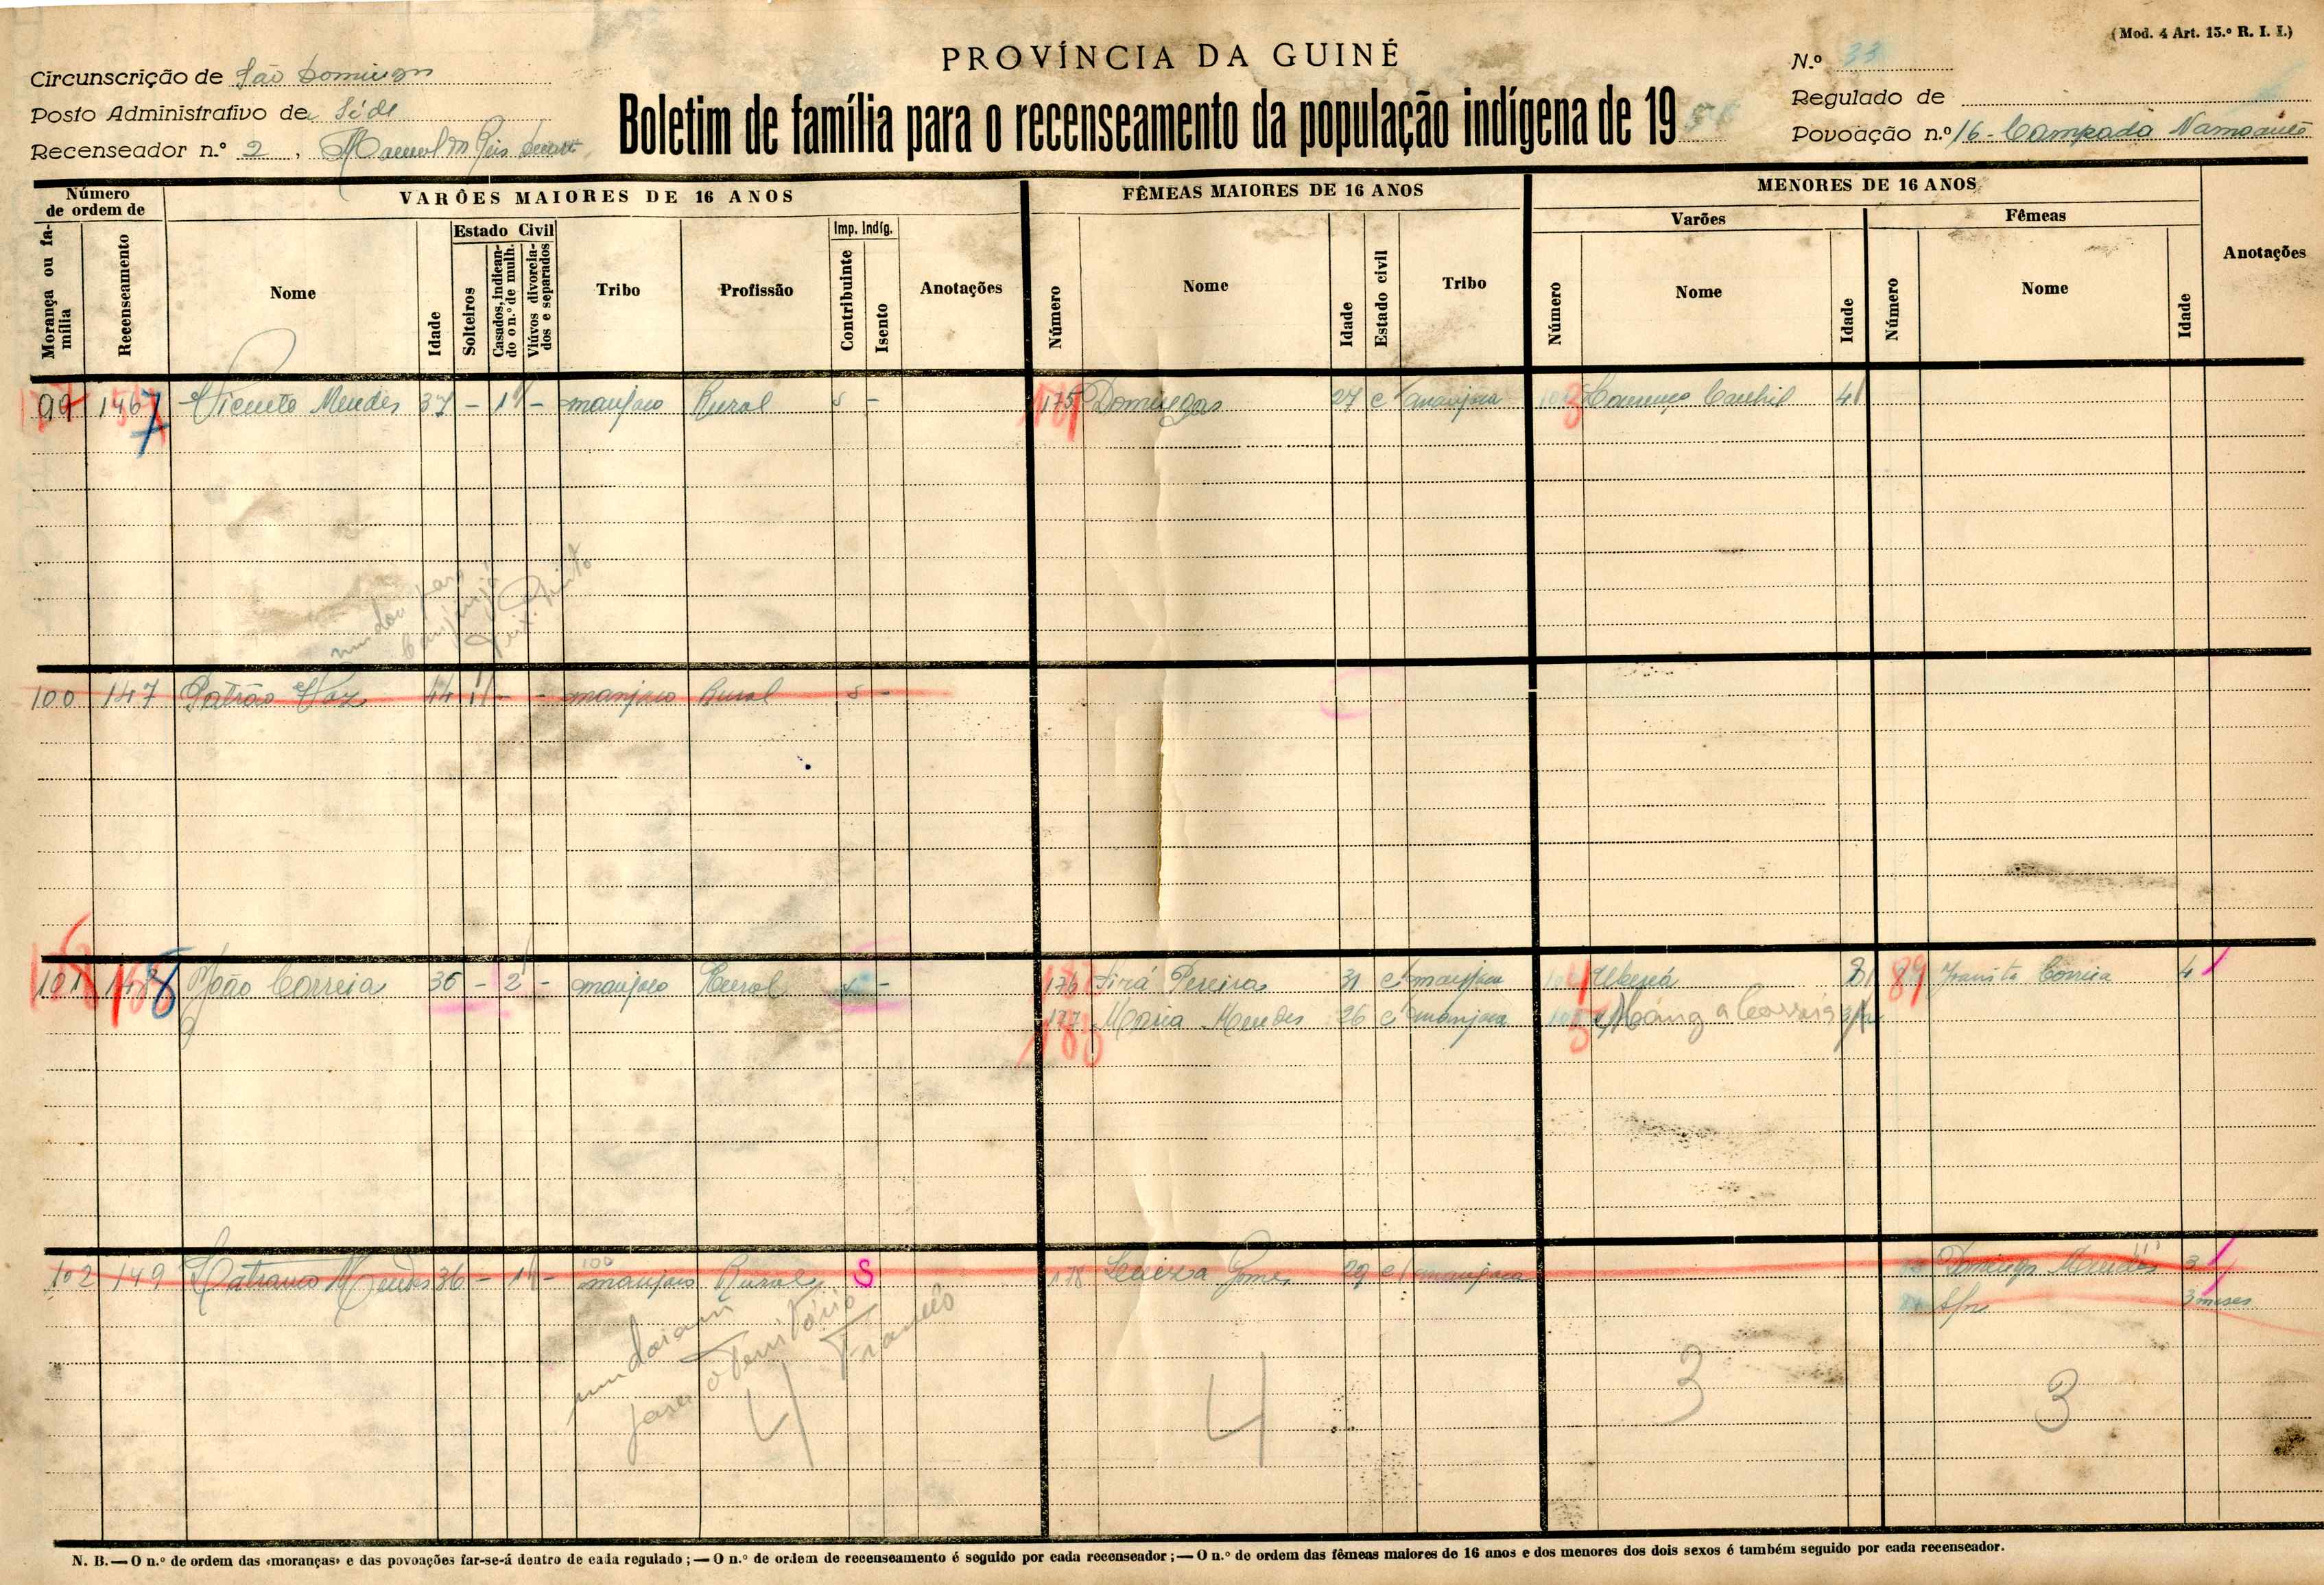 (Mod. 4 Art. 15.º R. I. I.)
PROVÍNCIA DA GUINÉ
Boletim de família para o recenseamento da população indígena de 1956
Circunscrição de São Domingos
Posto Administrativo de Séde
Recenseador n.º 2, Manuel
N.º 33
Regulado de
Povoação n.º 16 - Campada
Número de ordem de
VARÕES MAIORES DE 16 ANOS
FÊMEAS MAIORES DE 16 ANOS
MENORES DE 16 ANOS
Morança ou família
Recenseamento
Nome
Idade
Estado Civil
Solteiros
Casados, indicando o n.º de mulh.
Viúvos divorciados e separados
Tribo
Profissão
Imp. Indíg.
Contribuinte
Isento
Anotações
Número
Nome
Idade
Estado civil
Tribo
Varões
Número
Nome
Idade
Fêmeas
Número
Nome
Idade
Anotações
99 146 7 Vicente Mendes 37 - 1 - manjaco Rural s - 175 Domingas 27 c manjaca 3 4
mudou para
100 147 Patrão Vaz 44 1 - - manjaco Rural s -
101 148 8 João Correia 36 - 2 - manjaco Rural - 176 Pereira 31 c manjaca 4 89 Correia 4
177 Maria Mendes 26 c manjaca 5 Correia
102 149 Mendes 36 - 1 - 100 manjaco Rural S 178 Gomes 29 c manjaca Domingas Mendes 3
S/n 3 meses
mudaram
para o Território
Francês
4 4 3 3
N. B. — O n.º de ordem das «moranças» e das povoações far-se-á dentro de cada regulado; — O n.º de ordem de recenseamento é seguido por cada recenseador; — O n.º de ordem das fêmeas maiores de 16 anos e dos menores dos dois sexos é também seguido por cada recenseador.